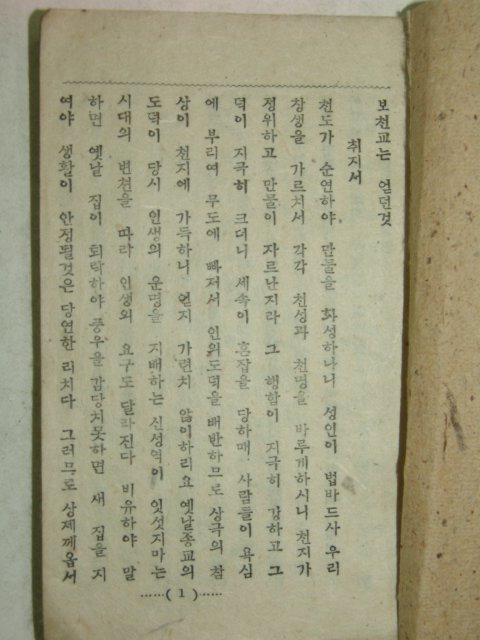 보천교는 엇던것
취지서
천도가 순연하야 만물을 화성하나니 성인이 법바드사 우리
창생을 가르치서 각각 천성과 천명을 바루게하시니 천지가
정위하고 만물이 자르난지라 그 행함이 지극히 강하고 그
덕이 지극히 크더니 세속이 혼잡을 당하매 사람들이 욕심
에 부리여 무도에 빠저서 인위도덕을 배반하므로 상극의 참
상이 천지에 가득하니 엇지 가련치 않이하리요 옛날종교의
도덕이 당시 인생의 운명을 지배하는 신성역이 잇섯지마는
시대의 변천을 따라 인생의 요구도 달라진다 비유하야 말
하면 옛날 집이 퇴락하야 풍우을 감당치못하면 새 집을 지
여야 생활이 안정될것은 당연한 리치다 그러므로 상제께옵서
……( 1 )……